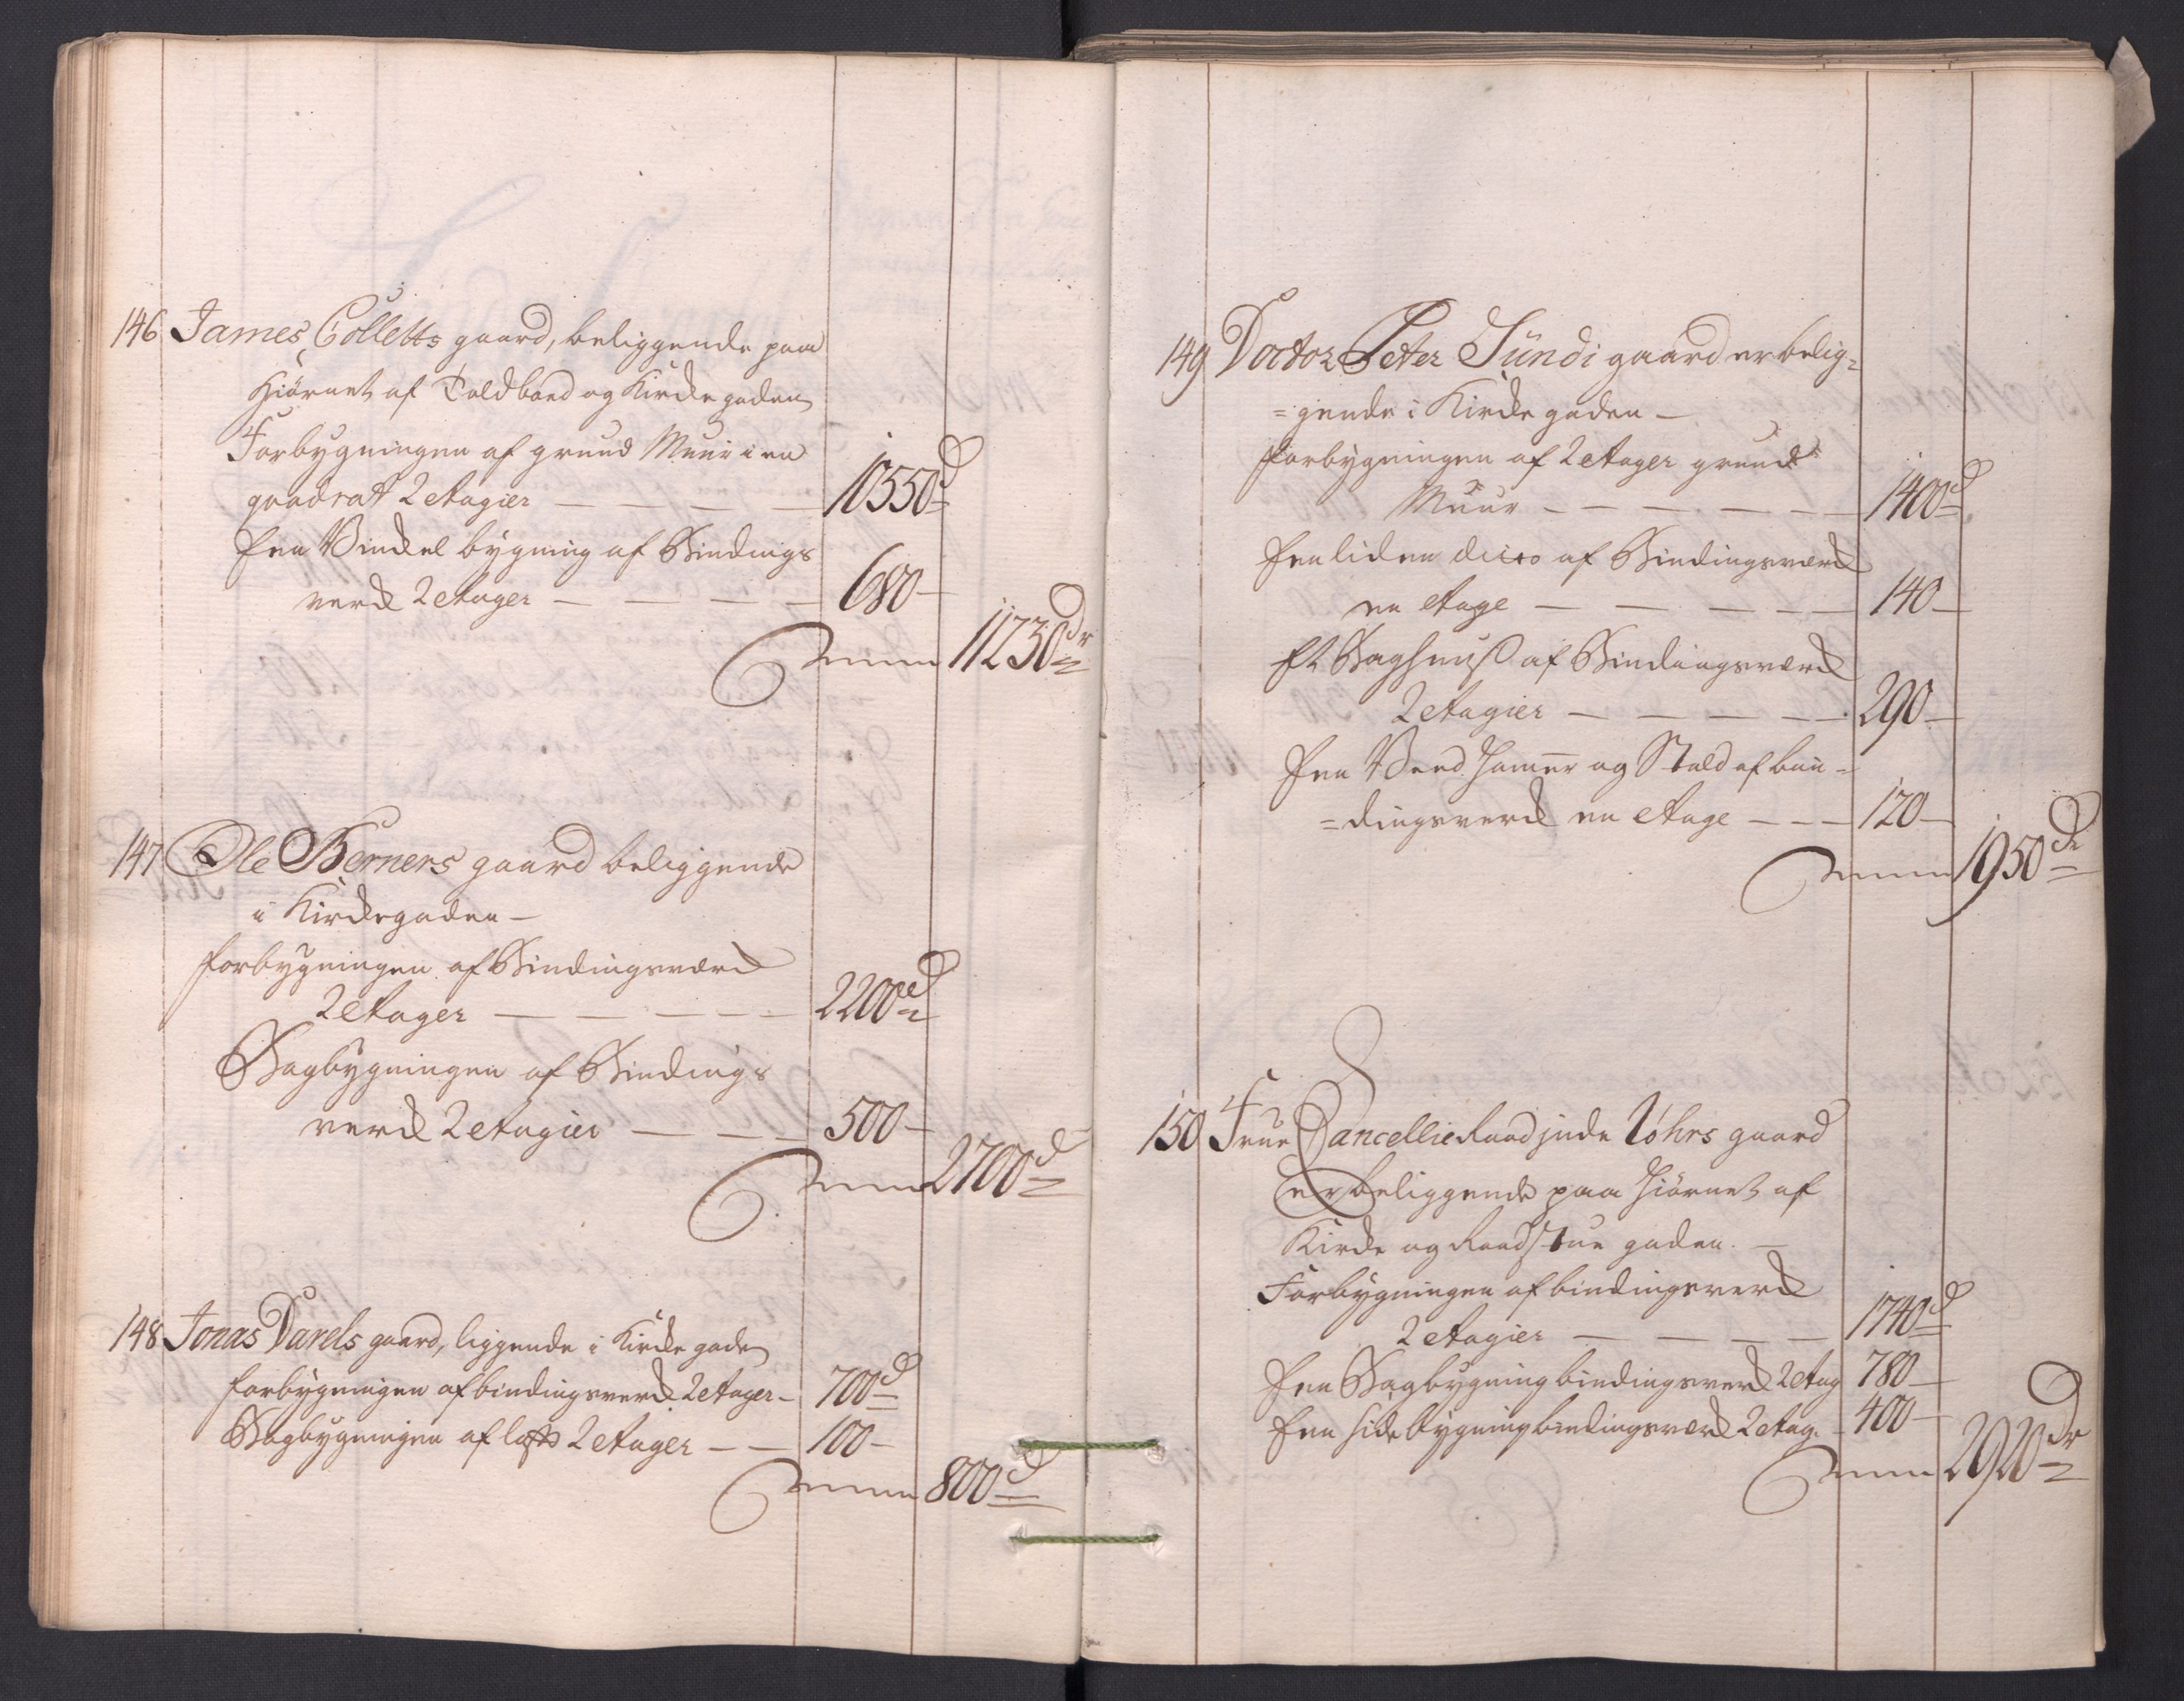 146 James Colletts gaard, beliggende paa
Hiörnet af Toldbod og Kirke gaden
Forbygningen af grund Muur i en
qvadrat 2 etagier — — — — 10550 d
Een Vinckel bygning af Bindings
verck 2 etager — — — — 680 —
Summa 11230 dr
147 Ole Berners gaard beliggende
i Kirckegaden —
Forbygningen af Bindingsverck
2 etager — — — — — 2200 d
Bagbygningen af Bindings
verck 2 etagier — — — 500 —
Summa 2700 d
148 Jonas Darels gaard, liggende i Kircke gaden
forbygningen af bindingsverck 2 etager — 700 d
Bagbygningen af 2 etager — — 100 —
Summa 800 d
149 Doctor Peter Sündi gaard er belig=
=gende i Kircke gaden —
Forbygningen af 2 etager grund
Muur — — — — — — 1400 d
Een liden dito af Bindingsverck
en etage — — — — — 140 —
Et Baghuus af Bindingsverck
2 etagier — — — — — 290 —
Een Veed Hammer og Stald af bin=
=dingsverck en etage — — — 120 —
Summa 1950 dr
150 Frue Cancellie Raadinde Röhrs gaard
er beliggende paa Hiörnet af
Kircke og Raadstue gaden. —
Forbygningen af bindingsverck
2 etagier — — — — 1740 d
Een Bagbygning bindingsverck 2 etag 780 —
Een side bygning bindingsverck 2 etag. — 400 —
Summa 2920 dr